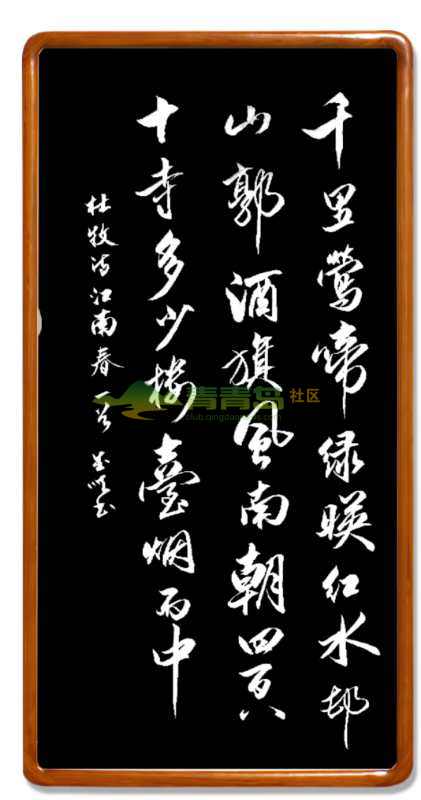 千里莺啼绿暎红水邨
山郭酒旗风南朝四百八
十寺多少楼臺烟雨中
杜牧诗江南春一首
青青岛社区
club.qingdaonews.com